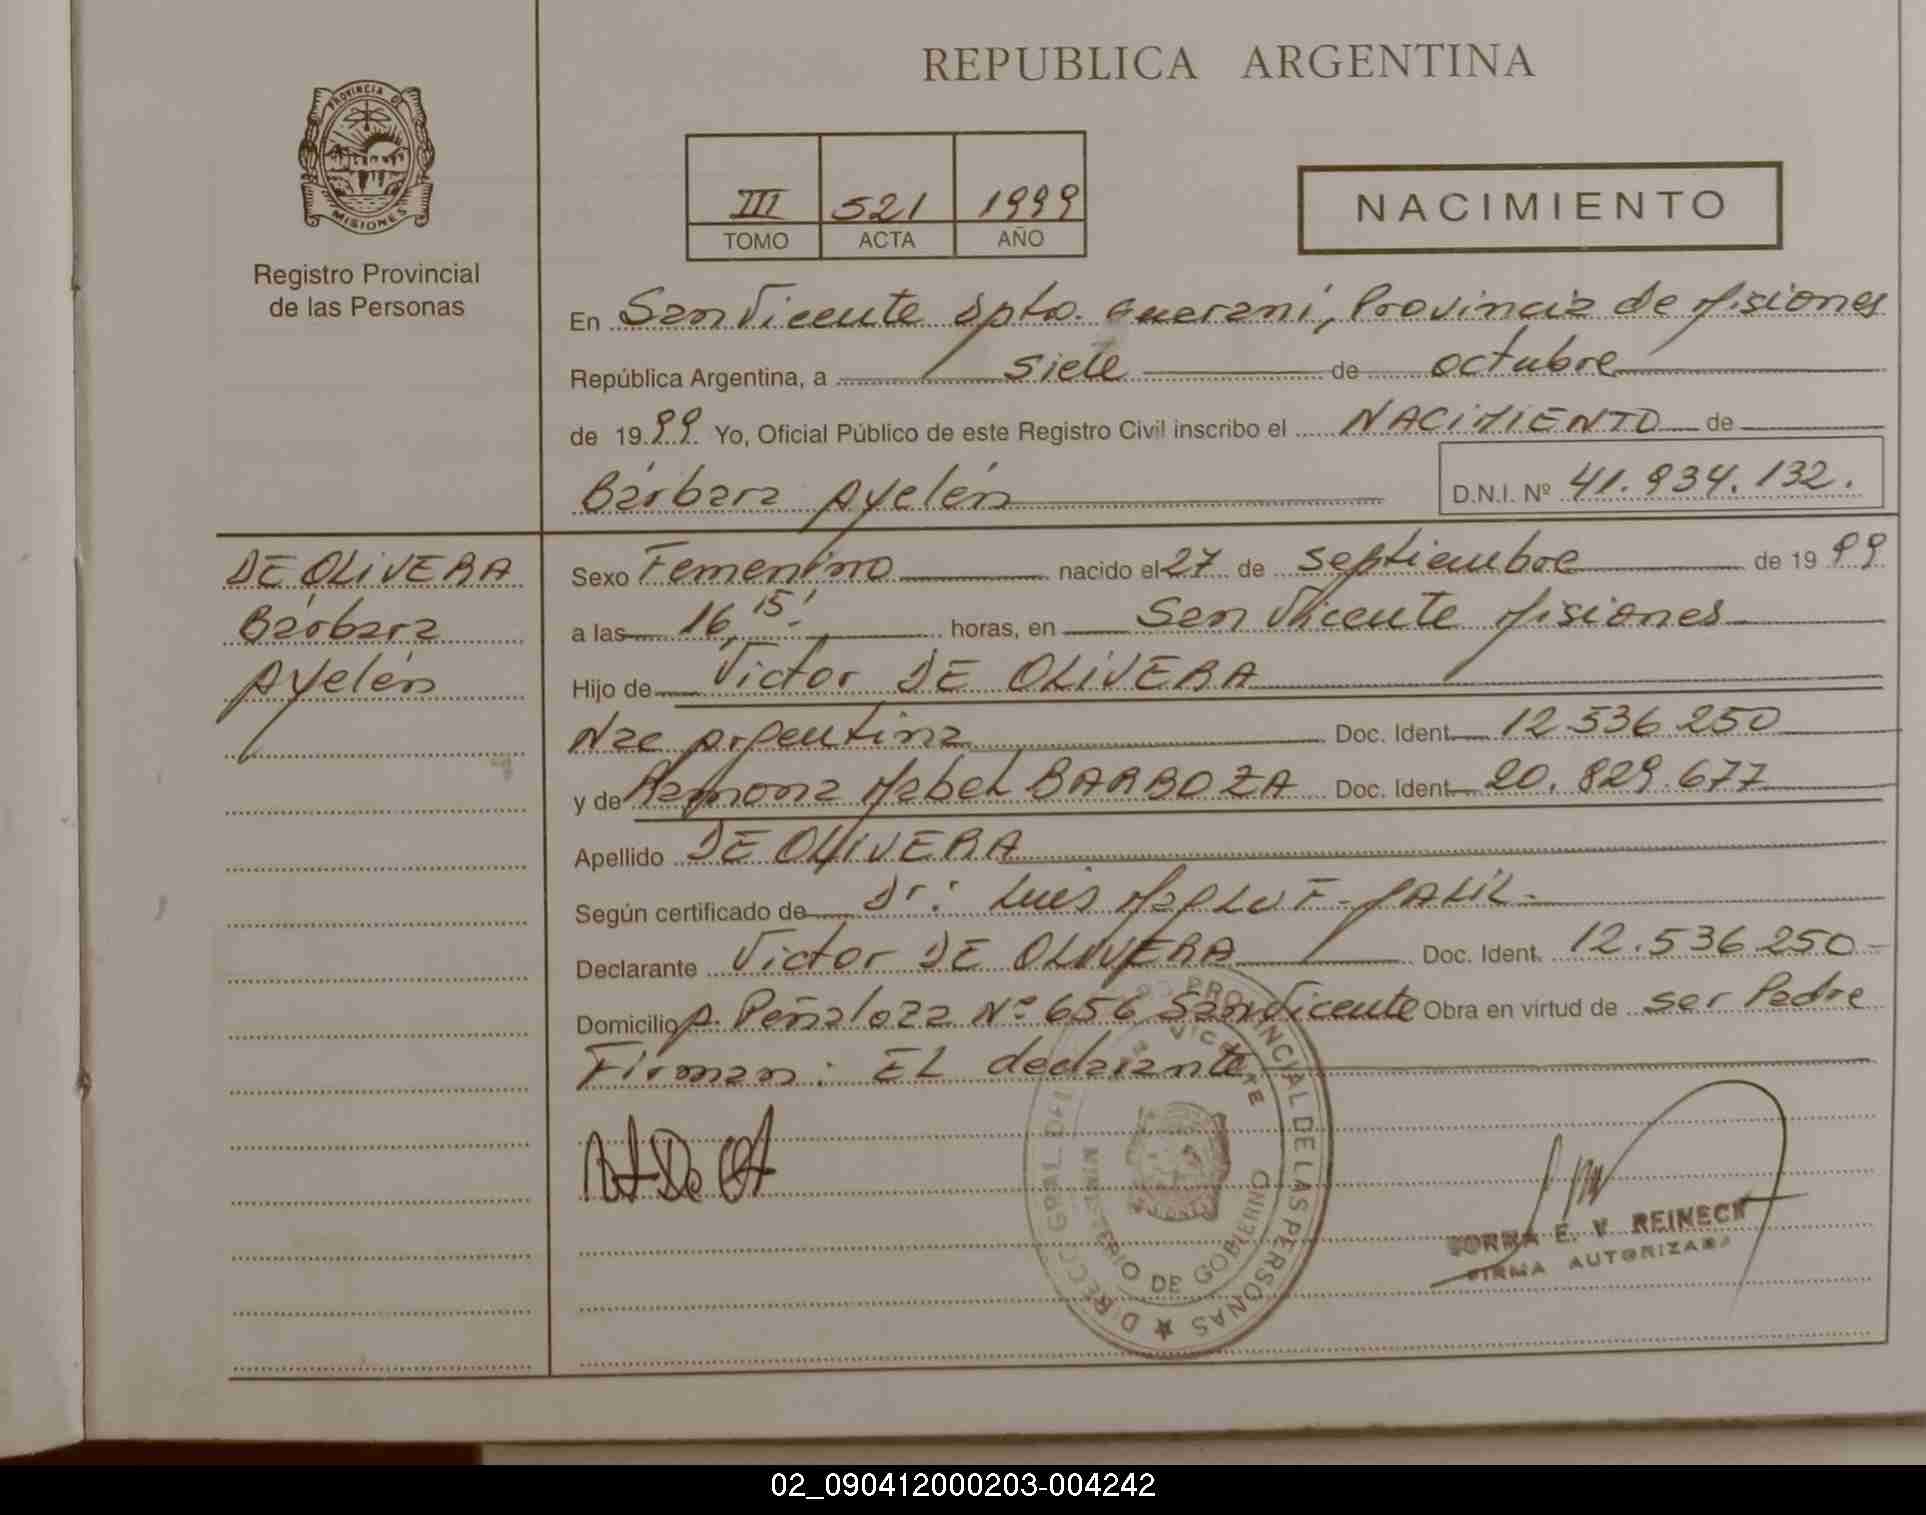 REPUBLICA ARGENTINA
PROVINCIA DE
MISIONES
Registro Provincial
de las Personas
III 521 1999
TOMO ACTA AÑO
NACIMIENTO
En San Vicente Dpto. Guaraní, Provincia de Misiones
República Argentina, a siete de octubre
de 1999 Yo, Oficial Público de este Registro Civil inscribo el NACIMIENTO de
Bárbara Ayelén D.N.I. Nº 41.934.132.
DE OLIVERA
Bárbara
Ayelén
Sexo Femenino nacido el 27 de septiembre de 1999
a las 16,15! horas, en San Vicente Misiones
Hijo de Victor DE OLIVERA
Nac Argentina Doc. Ident. 12.536.250
y de Ramona Mabel BARBOZA Doc. Ident. 20.829.677
Apellido DE OLIVERA
Según certificado de Dr: Luis
Declarante Victor DE OLIVERA Doc. Ident. 12.536.250-
Domicilio P. Peñaloza Nº 656 San Vicente Obra en virtud de ser Padre
Firman: EL declarante
DIREC. GRAL. DEL PROVINCIAL DE LAS PERSONAS
VICENTE
MINISTERIO DE GOBIERNO
E. V. REINECK
FIRMA AUTORIZADA
02_090412000203-004242